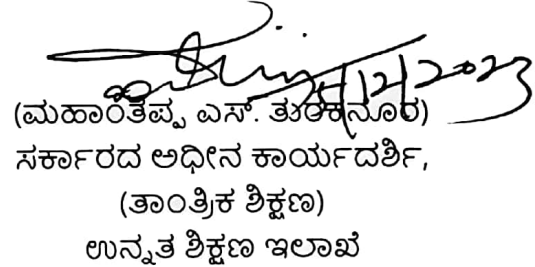 /12/2023
(ಮಹಾಂತಪ್ಪ ಎಸ್. ತುರಕನೂರ)
ಸರ್ಕಾರದ ಅಧೀನ ಕಾರ್ಯದರ್ಶಿ,
(ತಾಂತ್ರಿಕ ಶಿಕ್ಷಣ)
ಉನ್ನತ ಶಿಕ್ಷಣ ಇಲಾಖೆ